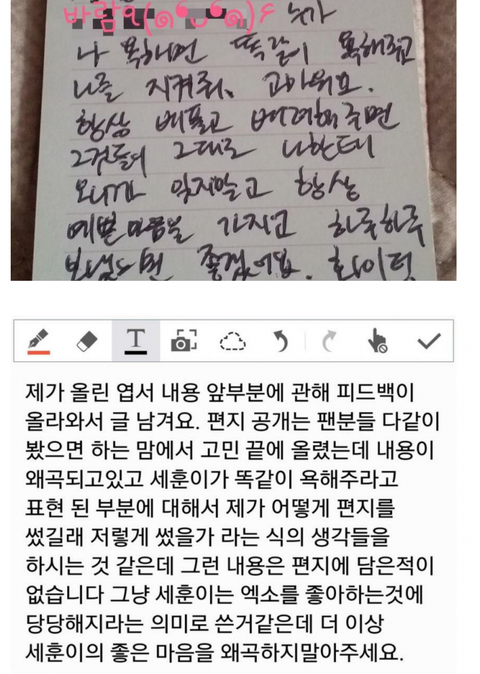 바람와(๑❛ᴗ❛๑)۶ 누가
나 욕하면 똑같이 욕해주고
나를 지켜줘. 고마워요.
항상 베풀고 배려해주면
그것들이 그대로 너한테
오니까 잊지말고 항상
예쁜 마음을 가지고 하루하루
보냈으면 좋겠어요. 화이팅
T
제가 올린 엽서 내용 앞부분에 관해 피드백이
올라와서 글 남겨요. 편지 공개는 팬분들 다같이
봤으면 하는 맘에서 고민 끝에 올렸는데 내용이
왜곡되고있고 세훈이가 똑같이 욕해주라고
표현 된 부분에 대해서 제가 어떻게 편지를
썼길래 저렇게 썼을가 라는 식의 생각들을
하시는 것 같은데 그런 내용은 편지에 담은적이
없습니다 그냥 세훈이는 엑소를 좋아하는것에
당당해지라는 의미로 쓴거같은데 더 이상
세훈이의 좋은 마음을 왜곡하지말아주세요.